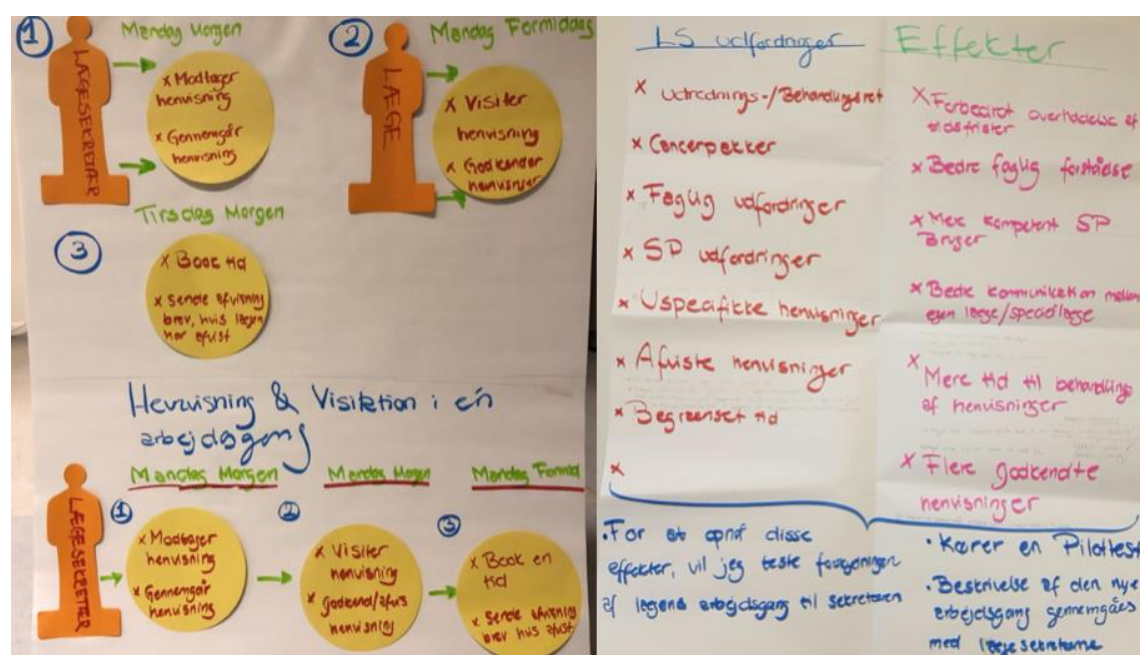 1
Mandag Morgen
LÆGESEKRETÆR
x Modtager
henvisning
x Gennemgår
henvisning
2
Mandag Formiddag
LÆGE
x Visiter
henvisning
x Godkender
henvisning
Tirsdag Morgen
3
x Book tid
x Sende afvisning
brev, hvis lægen
har afvist
Henvisning & Visitation i én
arbejdsgang
LÆGESEKRETER
Mandag Morgen
1
x Modtager
henvisning
x Gennemgår
henvisning
Mandag Morgen
2
x Visiter
henvisning
x Godkend/afvis
henvisning
Mandag Formid
3
x Book en
tid
x Sende afvisning
brev hvis afvist
LS udfordringer
x Udrednings-/Behandlingsret
x Cancerpakker
x Faglig udfordringer
x SP udfordringer
x Uspecifikke henvisninger
x Afviste henvisninger
x Begrænset tid
x
Effekter
x Forbedret overholdelse af
tidsfrister
x Bedre faglig forståelse
x Mere kompetent SP
Bruger
x Bedre kommunikation mellem
egen læge/speciallæge
x Mere tid til behandling
af henvisninger
x Flere godkendte
henvisninger
• For at opnå disse
effekter, vil jeg teste
af lægens arbejdsgang til sekretæren
• Kører en Pilottest
• Beskrivelse af den nye
arbejdsgang gennemgåes
med lægesekretærne